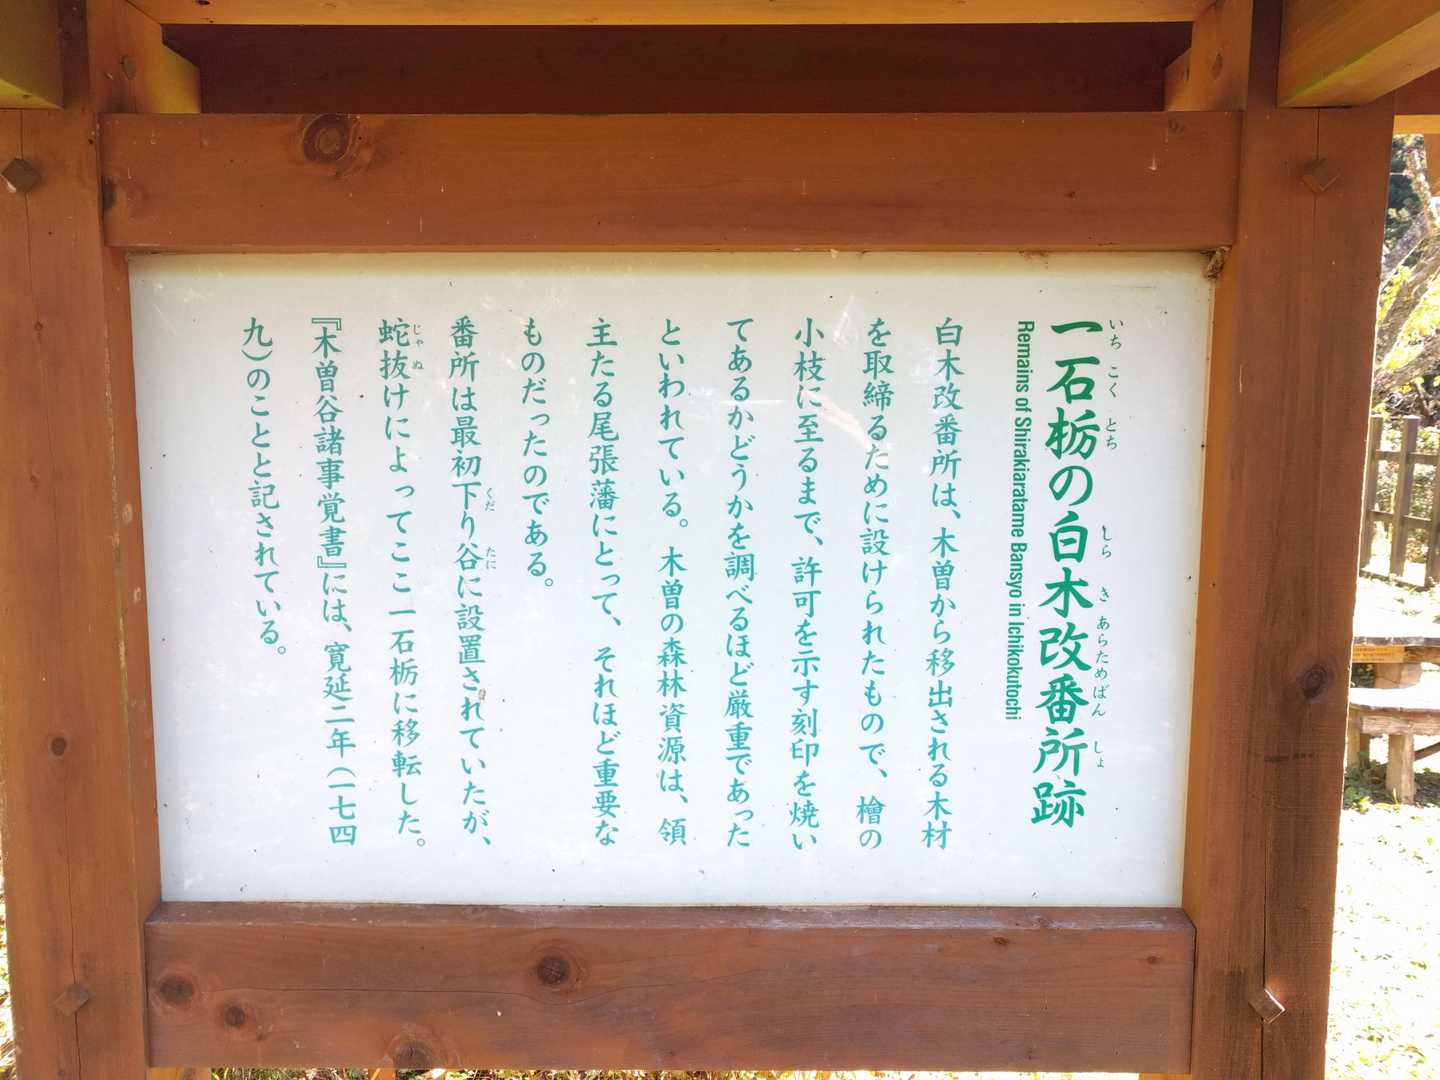 一石栃の白木改番所跡
いち こく とち しら き あらためばん しょ
Remains of Shirakiaratame Bansyo in Ichikokutochi
白木改番所は、木曽から移出される木材
を取締るために設けられたもので、檜の
小枝に至るまで、許可を示す刻印を焼い
てあるかどうかを調べるほど厳重であった
といわれている。木曽の森林資源は、領
主たる尾張藩にとって、それほど重要な
ものだったのである。
番所は最初下り谷に設置されていたが、
くだ たに
蛇抜けによってここ一石栃に移転した。
じゃ ぬ
『木曽谷諸事覚書』には、寛延二年(一七四
九)のことと記されている。